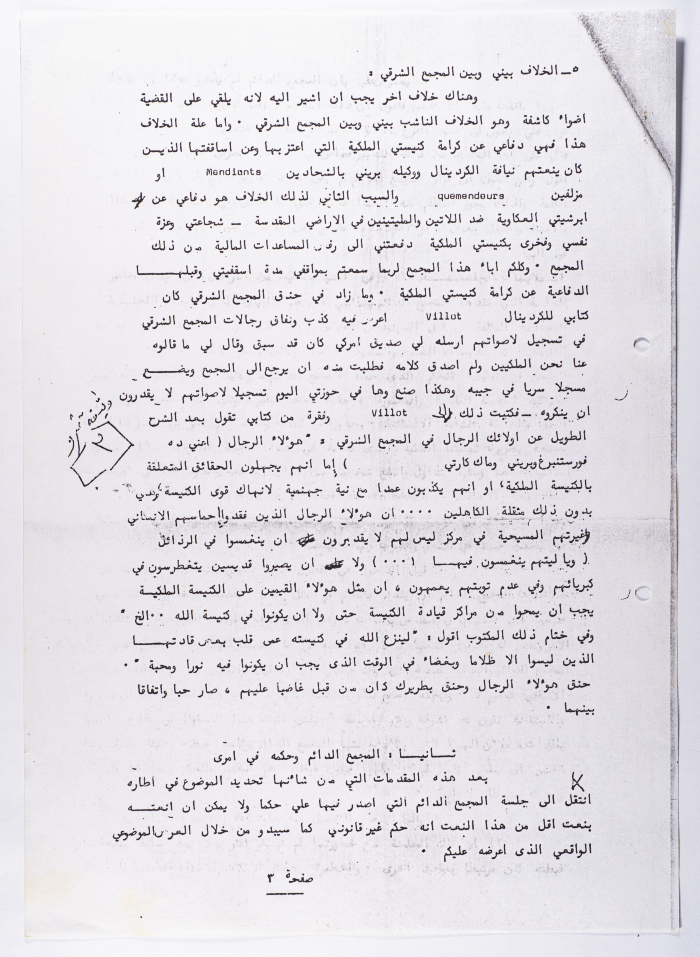 ٥ــ الخلاف بيني وبين المجمع الشرقي :
وهناك خلاف اخر يجب ان اشير اليه لانه يلقي على القضية
اضواء كاشفة وهو الخلاف الناشب بيني وبين المجمع الشرقي ٠ واما علة الخلاف
هذا فهي دفاعي عن كرامة كنيستي الملكية التي اعتز بها وعن اساقفتها الذيــن
كان ينعتهم نيافة الكردينال ووكيله بريني بالشحادين Mendiants او
مزلفين quemendeurs والسبب الثاني لذلك الخلاف هو دفاعي عن
ابرشيتي العكاوية ضد اللاتين والطيتينين في الاراضي المقدسة ــ شجاعتي وعزة
نفسي وفخرى بكنيستي الملكية دفعتني الى رفض المساعدات المالية من ذلك
المجمع ٠ وكلكم اباء هذا المجمع لربما سمعتم بمواقفي مدة اسقفيتي وقبلهـــا
الدفاعية عن كرامة كنيستي الملكية ٠ وما زاد في حنق المجمع الشرقي كان
كتابي للكردينال Villot اعرض فيه كذب ونفاق رجالات المجمع الشرقي
في تسجيل لاصواتهم ارسله لي صديق امركي كان قد سبق وقال لي ما قالوه
عنا نحن الملكيين ولم اصدق كلامه فطلبت منه ان يرجع الى المجمع ويضــع
مسجلا سريا في جيبه وهكذا صنع وها في حوزتي اليوم تسجيلا لاصواتهم لا يقدرون
ان ينكروه ــ فكتبت ذلك الى Villot وفقرة من كتابي تقول بعد الشرح
الطويل عن اولائك الرجال في المجمع الشرقي : " هو٠لاء الرجال ( اعني ده
فورستنبرغ وبريني وماك كارتي ) إما انهم يجهلون الحقائق المتعلقة
بالكنيسة الملكية ، او انهم يكذبون عمدا مع نية جهنمية لانهاك قوى الكنيسة وهي
بدون ذلك مثقلة الكاهلين ٠٠٠٠ ان هو٠لاء الرجال الذين فقدوا إحساسهم الانساني
وغيرتهم المسيحية في مركز ليس لهم لا يقدرون ان ينغمسوا في الرذائل
( ويا ليتهم ينغمسون فيهــا ٠٠٠! ) ولا ان يصيروا قديسين يتغطرسون في
كبريائهم وفي عدم توبتهم يعمهون ، ان مثل هو٠لاء القيمين على الكنيسة الملكية
يجب ان يمحوا من مراكز قيادة الكنيسة حتى ولا ان يكونوا في كنيسة الله ٠٠٠ الخ "
وفي ختام ذلك المكتوب اقول : " لينزع الله في كنيسته عمى قلب بعض قادتهــا
الذين ليسوا الا ظلاما وبغضاء في الوقت الذى يجب ان يكونوا فيه نورا ومحبة " ٠
حنق هو٠لاء الرجال وحنق بطريرك كان من قبل غاضبا عليهم ، صار حبا واتفاقا
بينهما ٠
ثــانيــا : المجمع الدائم وحكمه في امرى
بعد هذه المقدمات التي من شائنها تحديد الموضوع في اطاره
انتقل الى جلسة المجمع الدائم التي اصدر فيها علي حكما ولا يمكن ان انعتــه
بنعت اقل من هذا النعت انه حكم غير قانوني كما سيبدو من خلال العرض الموضوعي
الواقعي الذى اعرضه عليكم ٠
صفحة ٣